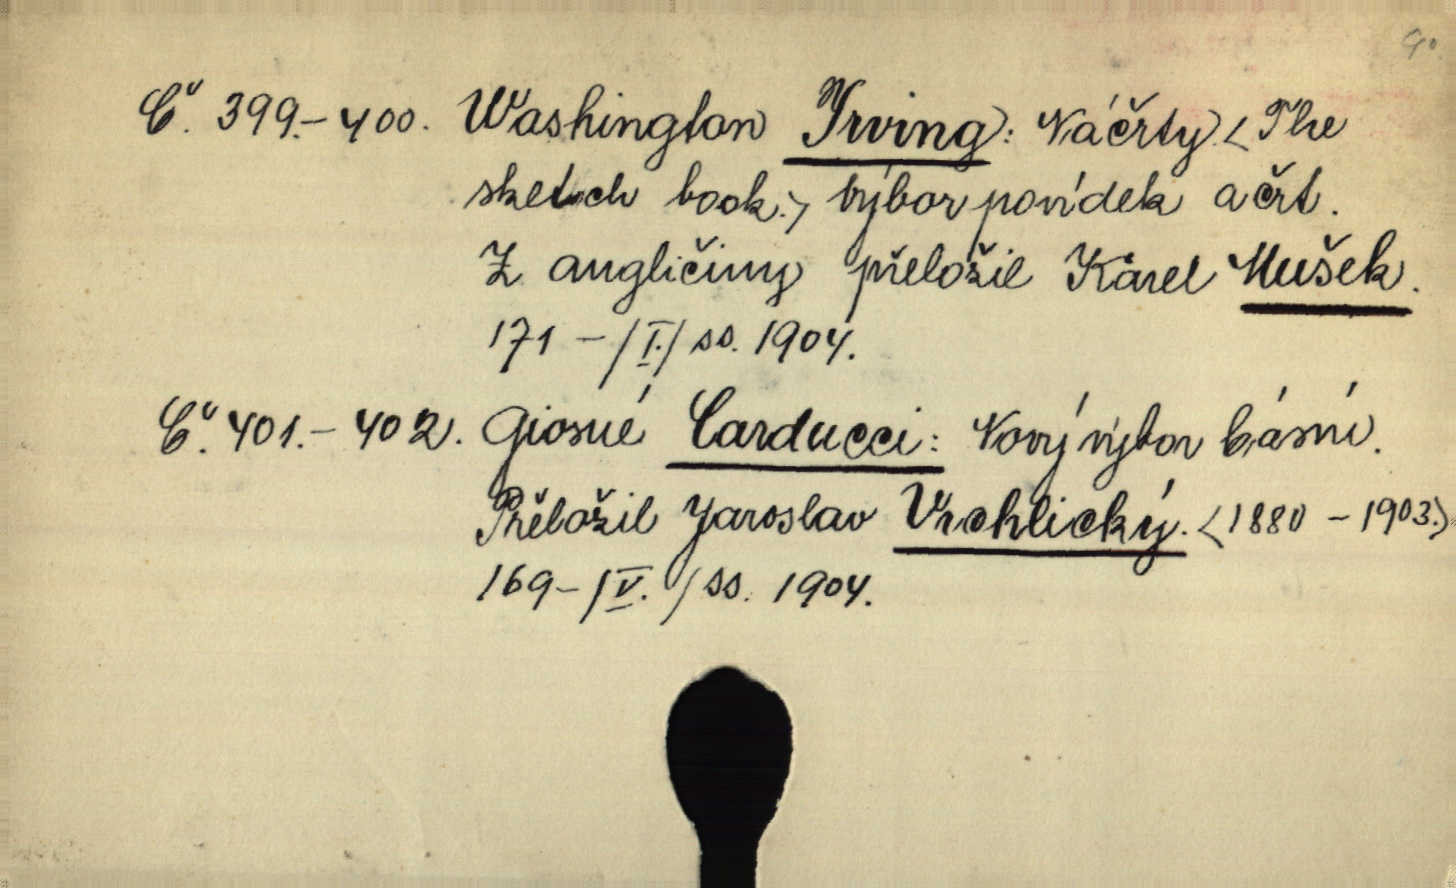 90
Č. 399.– 400. Washington Irving: Náčrty. <The
sketch book.> Výbor povídek a črt.
Z angličiny přeložil Karel Mušek.
171 – /I./ ss. 1904.
Č. 401.– 402. Giosué Carducci: Nový výbor básní.
Přeložil Jaroslav Vrchlický. <1880 – 1903.>
169 – /V./ ss. 1904.